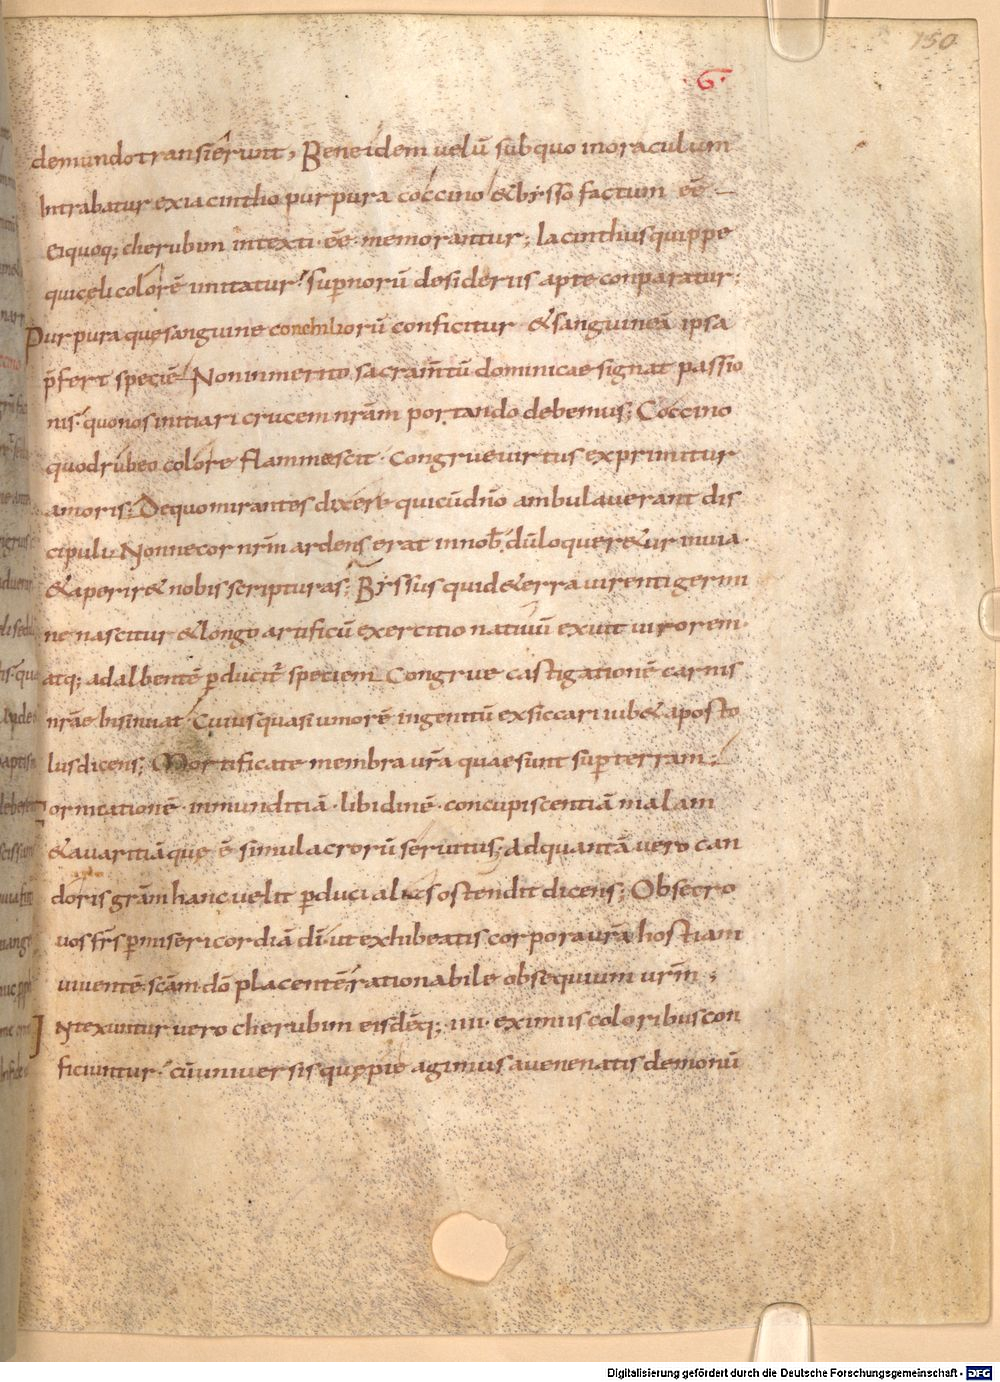 150
·6·
demundotransierunt, Bene idem uelū sub quo in oraculum
Intrabatur exiacinctho purpura coccino &bysso factum eē
Eiquoq; cherubim intexti eē memorantur; Iacinthus quippe
quicęli colorē imitatur supnorū desideriis apte conparatur;
Purpura quę sanguine conchiliorū conficitur &sanguineā ipsa
p̄fert speciē Non inmerito sacram̄tū dominicae signat passio
nis· quo nos initiari crucem nr̄am portando debemus; Coccino
quod rubeo colore flammescit· congrue uirtus exprimitur
amoris; De quo mirantes dixer quicūdn̄o ambulauerant dis
cipuli Nonne cor nr̄m ardens erat in nob̄ dū loquer&ur inuia·
&aperir& nobis scripturas; Byssus quid&erra uirenti germi
ne nascitur &longo artificū exercitio natiuū exuit uirorem·
atq; adalbentē pducit̄ speciem Congrue castigationē carnis
nr̄ae insinuat Cuius quasi umorē ingenitū exsiccari iub& aposto
lus dicens; Mortificate membra ur̄a quae sunt sup terram;
ornicationē· inmunditiā· libidinē· concupiscentiā malam
&auaritiā quę ē simulacrorū seruitus; Ad quantā uero can
doris gr̄am hanc uelit pduci alias ostendit dicens; Obsecro
uos fr̄s p misericordiā dī ut exhibeatis corpora ur̄a hostiam
uiuentē· sc̄am· dō placentē rationabile obsequium ur̄m;
Intexuntur uero cherubim eisdēq; iiii· eximiis coloribus con
ficiuntur· cū uniuersis quę pie agimus auenenatis demonū
Digitalisierung gefördert durch die Deutsche Forschungsgemeinschaft - DFG